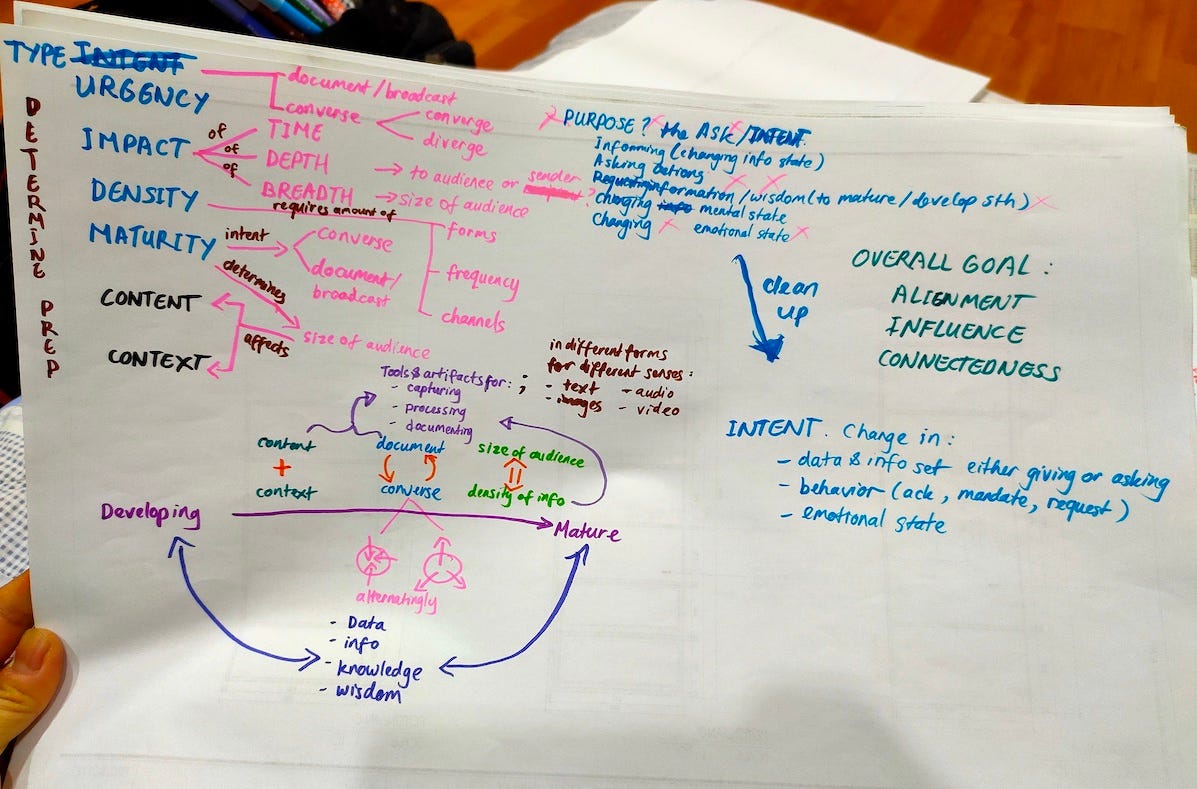 TYPE INTENT
URGENCY
document/broadcast
converse
converge
diverge
DETERMINE PREP
IMPACT
of TIME
of DEPTH
of BREADTH
→ to audience or sender
→ size of audience
DENSITY
requires amount of
forms
frequency
channels
MATURITY
intent
converse
document/
broadcast
determines
size of audience
CONTENT
CONTEXT
affects
PURPOSE? the ASK/INTENT.
Informing (changing info state)
Asking actions
Requesting information/wisdom (to mature/develop sth)
Changing info mental state
Changing emotional state
clean
up
OVERALL GOAL:
ALIGNMENT
INFLUENCE
CONNECTEDNESS
INTENT. Change in:
- data & info set either giving or asking
- behavior (ack, mandate, request)
- emotional state
Tools & artifacts for:
- capturing
- processing
- documenting
;
in different forms
for different senses:
- text - audio
- images - video
content
+
context
document
converse
size of audience
density of info
Developing
Mature
alternatingly
- Data
- info
- knowledge
- wisdom